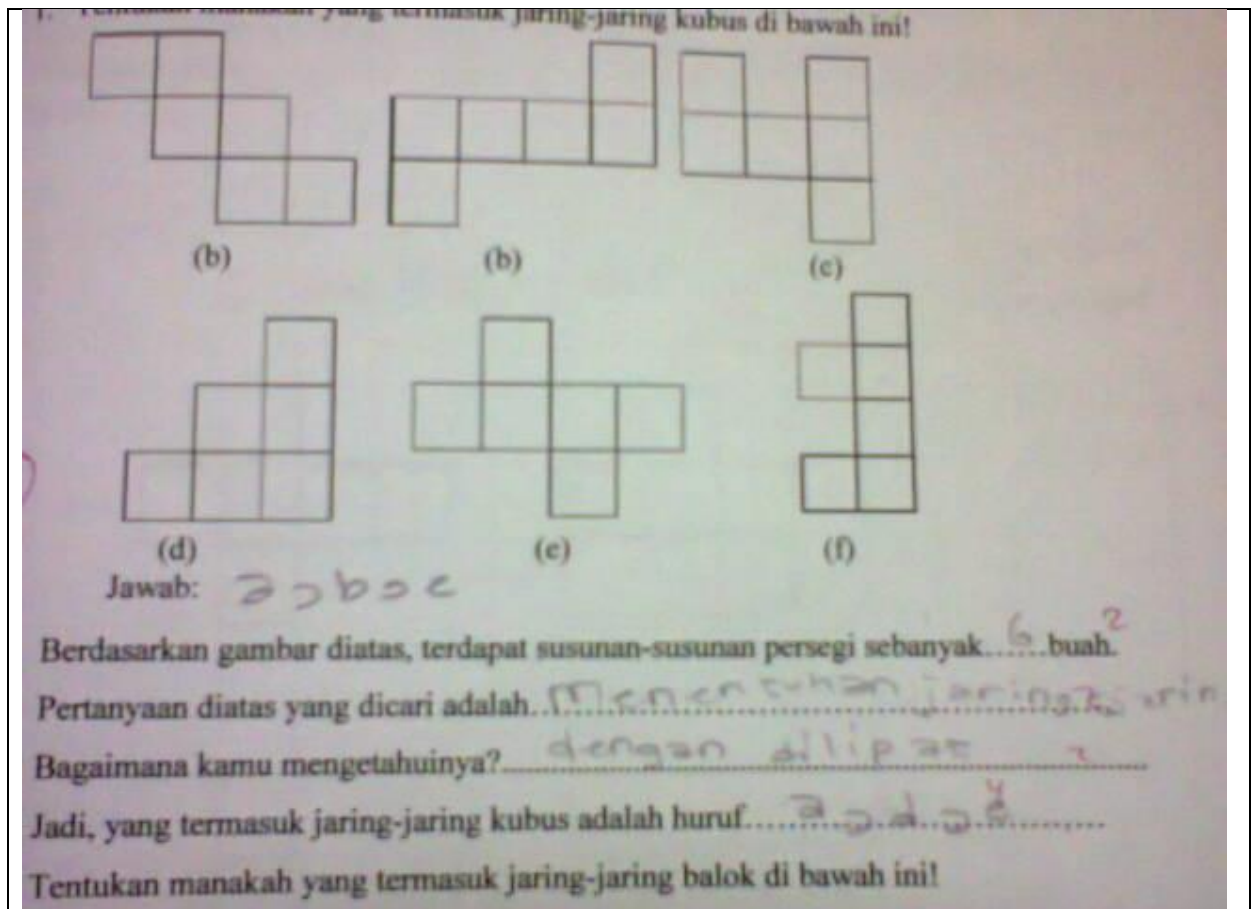 1. Tentukan manakah yang termasuk jaring-jaring kubus di bawah ini!
(b) (b) (c)
(d) (e) (f)
Jawab: a, b, e
Berdasarkan gambar diatas, terdapat susunan-susunan persegi sebanyak...6...buah. 2
Pertanyaan diatas yang dicari adalah. Menentukan jaring
Bagaimana kamu mengetahuinya? dengan dilipat 2
Jadi, yang termasuk jaring-jaring kubus adalah huruf. a, d, 4
Tentukan manakah yang termasuk jaring-jaring balok di bawah ini!